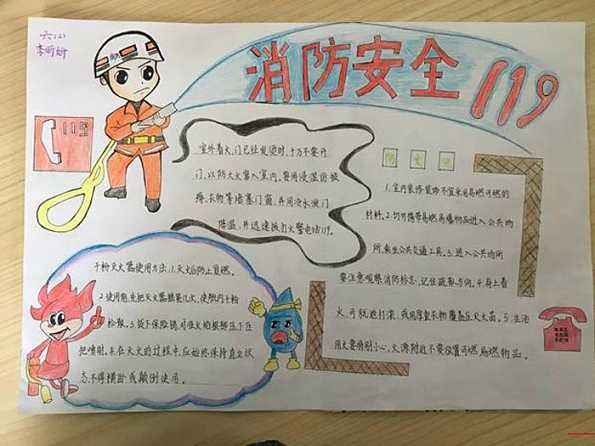 六(2)
李昕妍
消防安全119
119
室外着火,门已经发烫时,千万不要开
门,以防大火窜入室内,要用浸湿的被
褥、衣物等堵塞门窗,并用泼水淋门
降温,并迅速拨打火警电话119。
1.室内装修装饰不宜采用易燃可燃的
材料。2.切勿携带易燃易爆物品进入公共场
所、乘坐公共交通工具。3.进入公共场所
要注意观察消防标志,记住疏散方向。4.身上着
火,可就地打滚,或用厚重衣物覆盖压灭火苗。5.生活
用火要特别小心,火源附近不要放置可燃易燃物品。
干粉灭火器使用方法:1.灭火后防止复燃。
2.使用前先把灭火器摇晃几次,使瓶内干粉
松散。3.拔下保险销,对准火焰根部压下压
把喷射。4.在灭火的过程中,应始终保持直立状
态,不得横卧或颠倒使用。